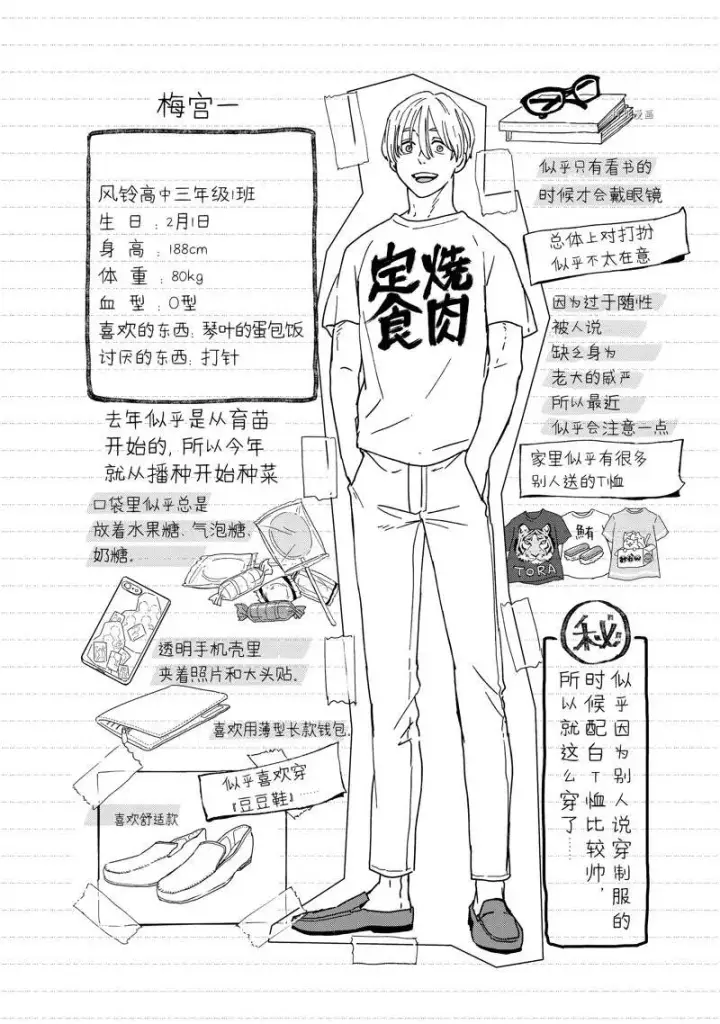 梅宫一
风铃高中三年级1班
生 日 : 2月1日
身 高 : 188cm
体 重 : 80kg
血 型 : O型
喜欢的东西: 琴叶的蛋包饭
讨厌的东西: 打针
去年似乎是从育苗
开始的, 所以今年
就从播种开始种菜
口袋里似乎总是
放着水果糖、气泡糖、
奶糖。
透明手机壳里
夹着照片和大头贴。
喜欢用薄型长款钱包。
似乎喜欢穿
『豆豆鞋』……
喜欢舒适款
定食
焼肉
漫画
似乎只有看书的
时候才会戴眼镜
总体上对打扮
似乎不太在意
因为过于随性
被人说
缺乏身为
老大的威严
所以最近
似乎会注意一点
家里似乎有很多
别人送的T恤
TORA
鮪
秘
似乎因为别人说穿制服的
时候配白T恤比较帅,
所以就这么穿了……